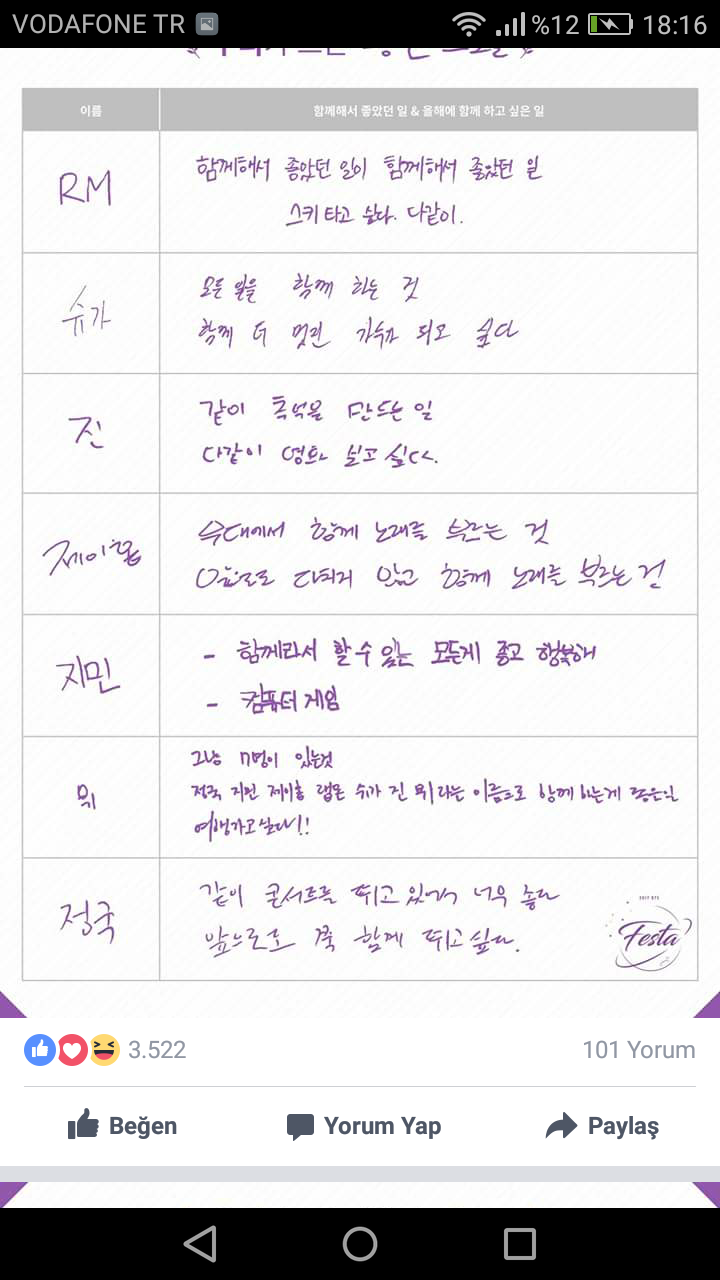 VODAFONE TR %12 18:16
이름 함께해서 좋았던 일 & 올해에 함께 하고 싶은 일
RM
함께해서 좋았던 일이 함께해서 좋았던 일
스키 타고 싶다. 다같이.
슈가
모든 일을 함께 하는 것
함께 더 멋진 가수가 되고 싶다
진
같이 추억을 만드는 일
다같이 영화 보고 싶다.
제이홉
무대에서 함께 노래를 부르는 것
앞으로도 다치지 않고 함께 노래를 부르는 것
지민
- 함께라서 할 수 있는 모든게 좋고 행복해
- 컴퓨터 게임
뷔
그냥 7명이 있는것
정국 지민 제이홉 랩몬 슈가 진 뷔 라는 이름으로 함께 하는게 좋은일
여행가고싶다!!
정국
같이 콘서트를 뛰고 있어서 너무 좋다
앞으로도 쭉 함께 뛰고 싶다.
2017 BTS
Festa
3.522 101 Yorum
Beğen Yorum Yap Paylaş